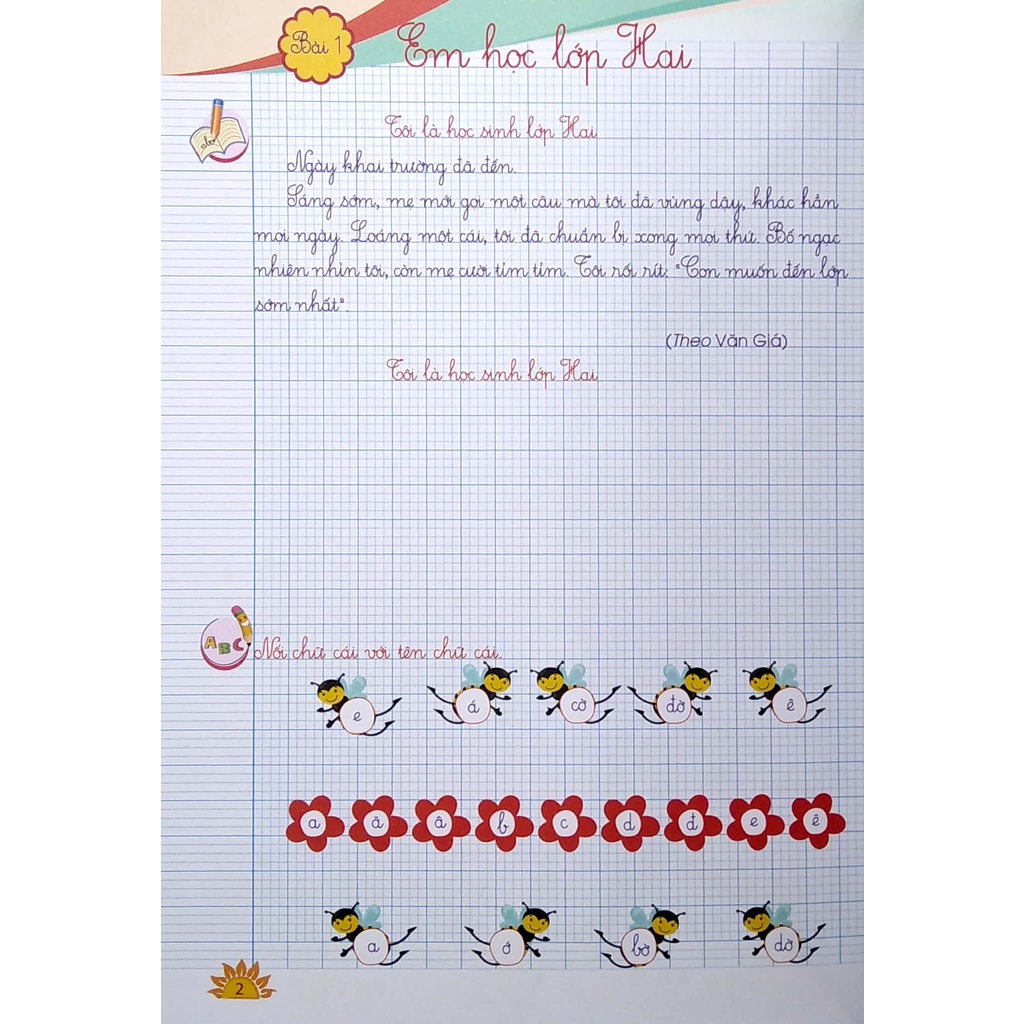 Bài 1
Em học lớp Hai
Tôi là học sinh lớp Hai
Ngày khai trường đã đến.
Sáng sớm, mẹ mới gọi một câu mà tôi đã vùng dậy, khác hẳn
mọi ngày. Loáng một cái, tôi đã chuẩn bị xong mọi thứ. Bố ngạc
nhiên nhìn tôi, còn mẹ cười tủm tỉm. Tôi rối rít: "Con muốn đến lớp
sớm nhất".
(Theo Văn Giá)
Tôi là học sinh lớp Hai
ABC
Nối chữ cái với tên chữ cái.
e á cờ đờ ê
a ă â b c d đ e ê
a ớ bờ dờ
2